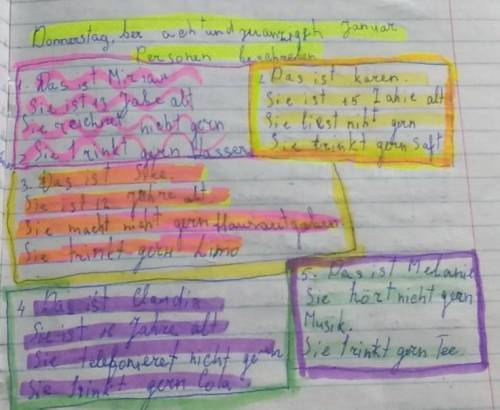 Donnerstag, der acht und zwanzigsh Januar
Personen beschreiben
1. Das ist Miriam
Sie ist 15 Jahre alt
Sie zeichnet nicht gern
2. Sie trinkt gern Wasser
2. Das ist Karen.
Sie ist 15 Jahre alt
Sie liest niht gern
Sie trinkt gern Saft
3. Das ist Silke.
Sie ist 12 Jahre alt
Sie macht nicht gern Hausaufgaben.
Sie trinkt gern Limo
4 Das ist Claudia
Sie ist 16 Jahre alt
Sie telefonieret nicht gern
Sie trinkt gern Cola.
5. Das ist Melanie
Sie hört nicht gern
Musik.
Sie trinkt gern Tee